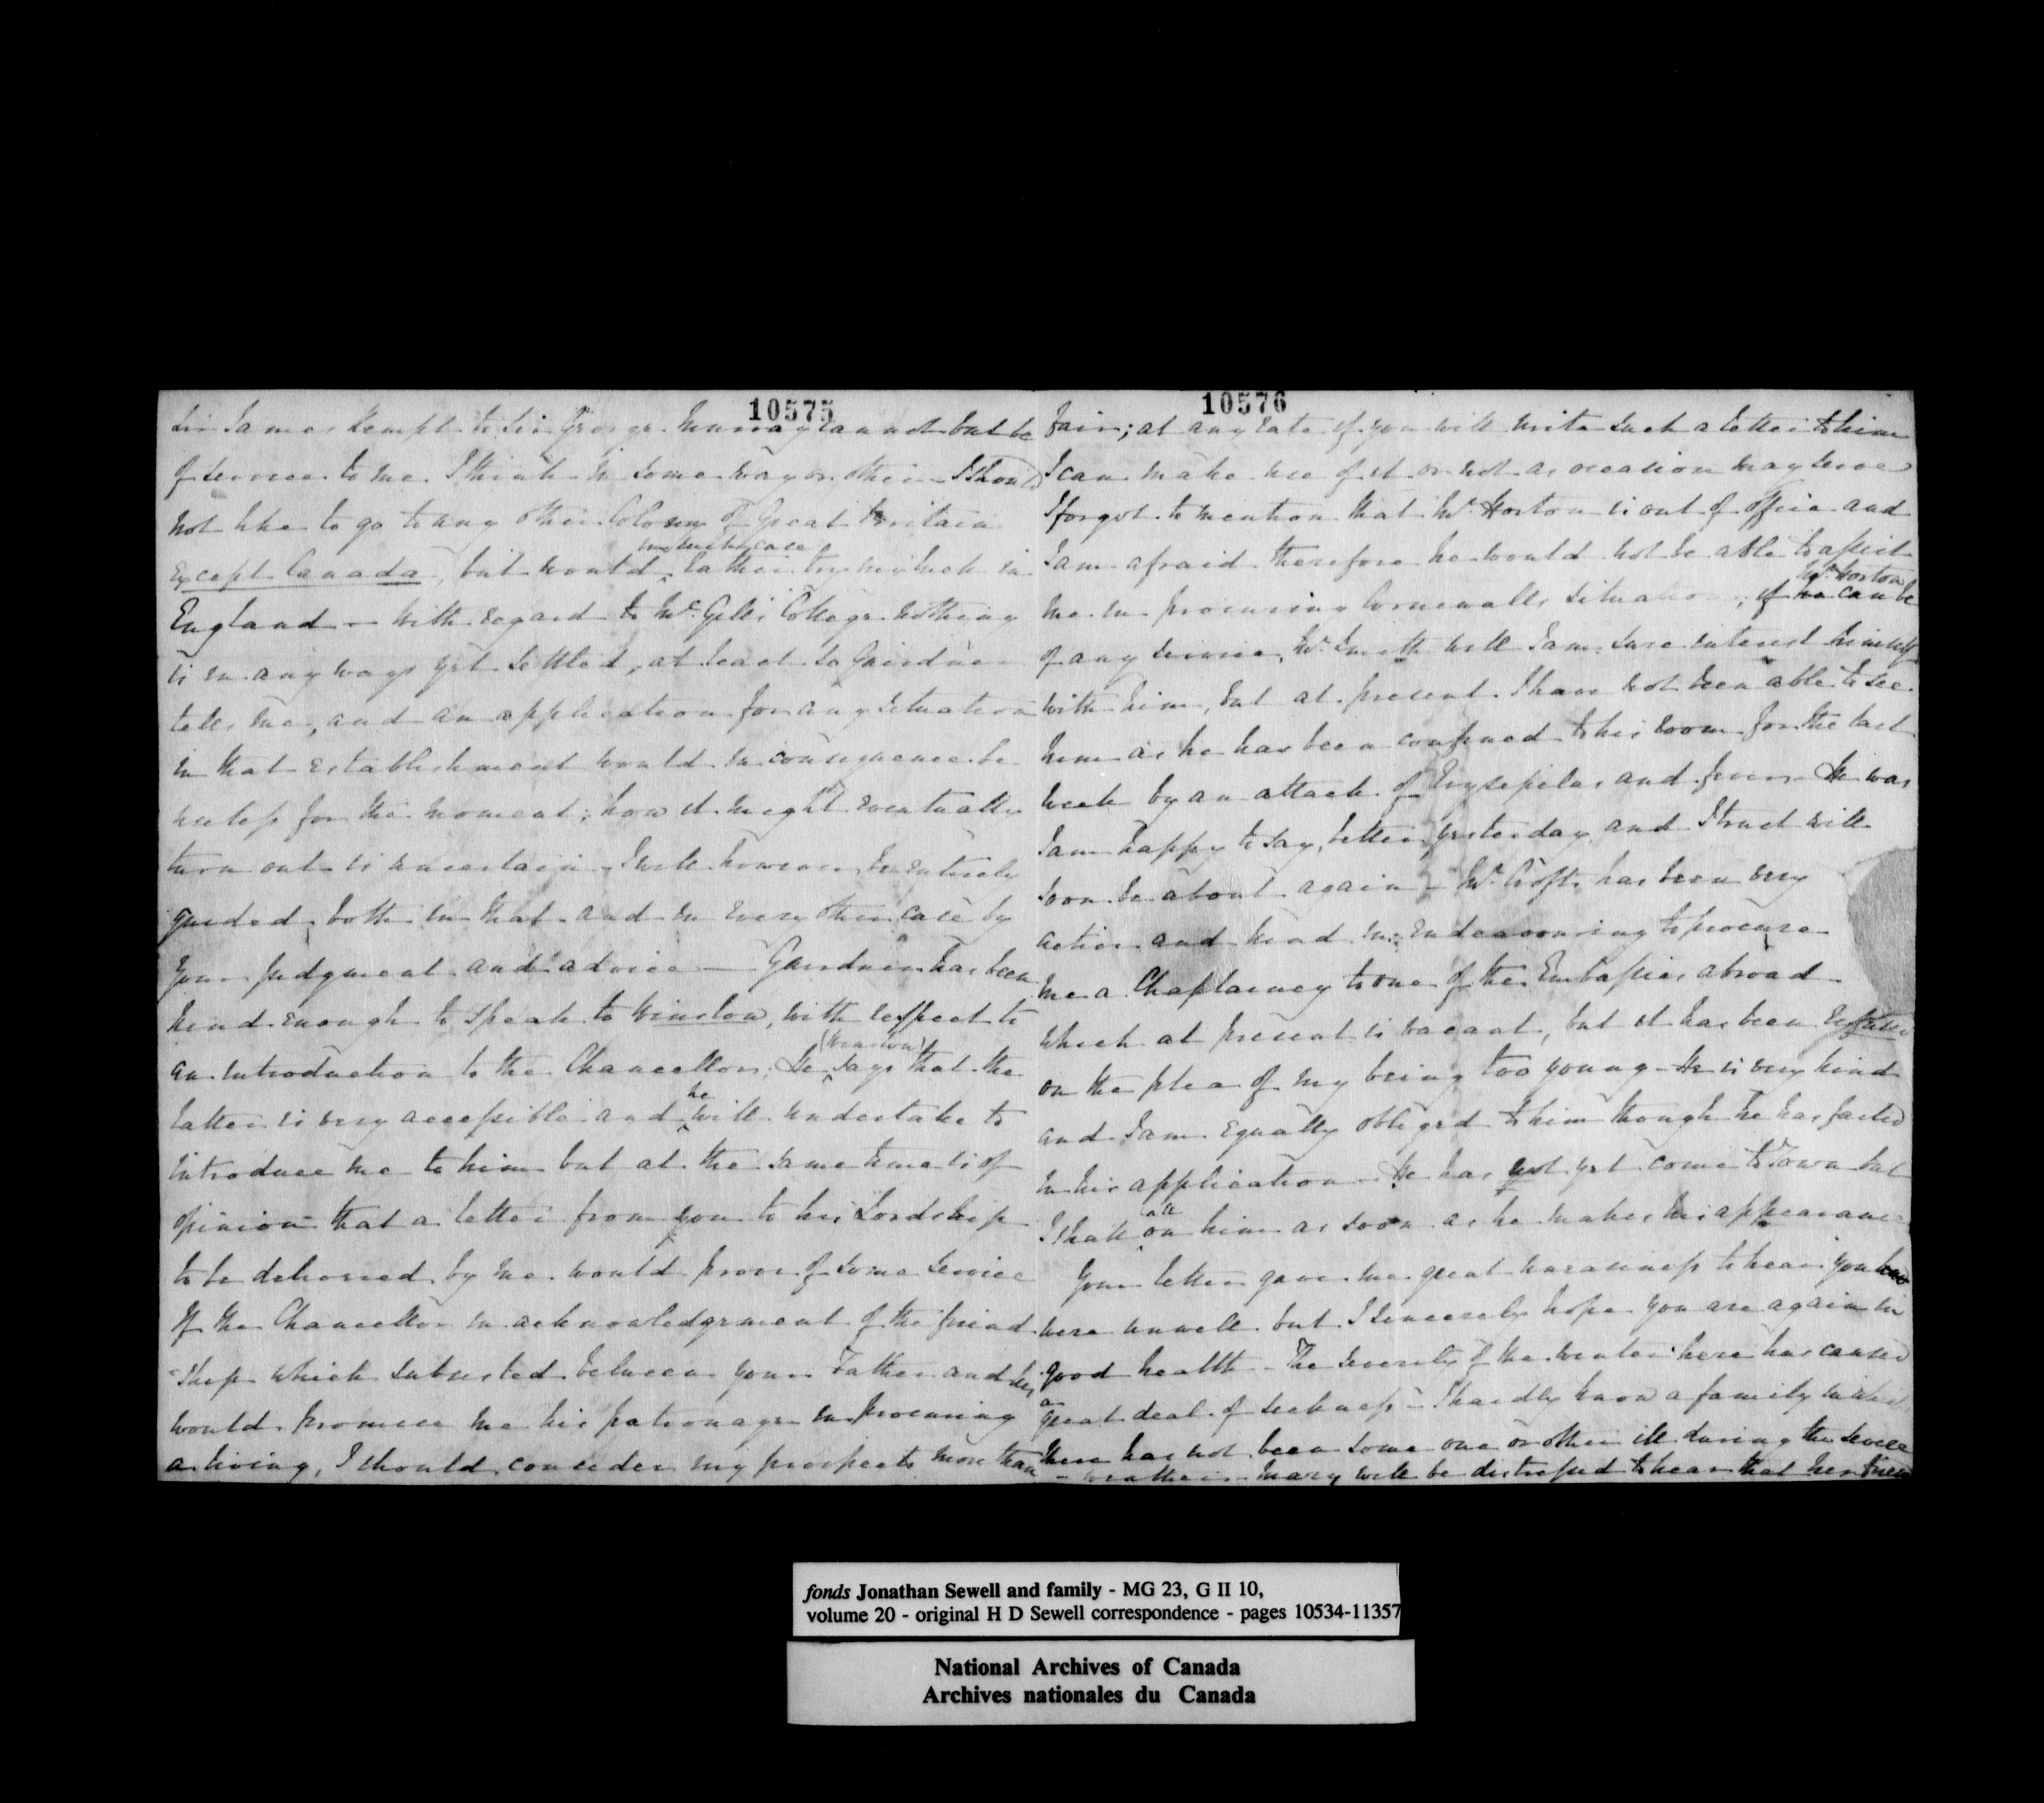 10575
Sir James Kempt to Sir George Murray cannot but be
of service to me I think in some way or other - I should
not like to go to any other Colony of Great Britain
in such case
except Canada, but would rather try my luck in
England - With regard to McGill's College nothing
is in any way yet settled, at least so Gairdner
tells me, and an application for any situation
in that establishment would in consequence be
useless for the moment; how it might eventually
turn out is uncertain - I will however be entirely
guided both in that and in every other case by
your judgment and advice - Gairdner has been
kind enough to speak to Winslow, with respect to
(Winslow)
an introduction to the Chancellor; He says that the
he
latter is very accessible and will undertake to
introduce me to him but at the same time is of
opinion that a letter from you to his Lordship
to be delivered by me would prove of some service
If the Chancellor in acknowledgement of the friend
-ship which subsisted between your Father and his
would promise me his patronage in procuring
a living, I should consider my prospects more than
10576
fair; at any rate if you will write such a letter to him
I can make use of it or not as occasion may serve
I forgot to mention that Mr. Horton is out of office and
I am afraid therefore he would not be able to assist
Mr. Horton
me in procuring Cornwalls situation; if he can be
of any service, Mr. Smith will I am sure interest himself
with him, but at present I have not been able to see
him as he has been confined to his room for the last
week by an attack of Erysipelas and fever - He was
I am happy to say, better yesterday and I trust will
soon be about again - Mr. Crofts has been very
active and kind in endeavouring to procure
me a Chaplaincy to one of the Embassies abroad
which at present is vacant, but it has been refused
on the plea of my being too young - He is very kind
and I am equally obliged to him though he has failed
in his application - He has not yet come to Town but
call
I shall on him as soon as he makes his appearance
Your letter gave me great uneasiness to hear you
were unwell but I sincerely hope you are again in
good health - The severity of the winter here has caused
a
great deal of sickness - I hardly know a family in which
there has not been some one or other ill during the severe
- weather - Mary will be distressed to hear that her
fonds Jonathan Sewell and family - MG 23, G II 10,
volume 20 - original H D Sewell correspondence - pages 10534-11357
National Archives of Canada
Archives nationales du Canada